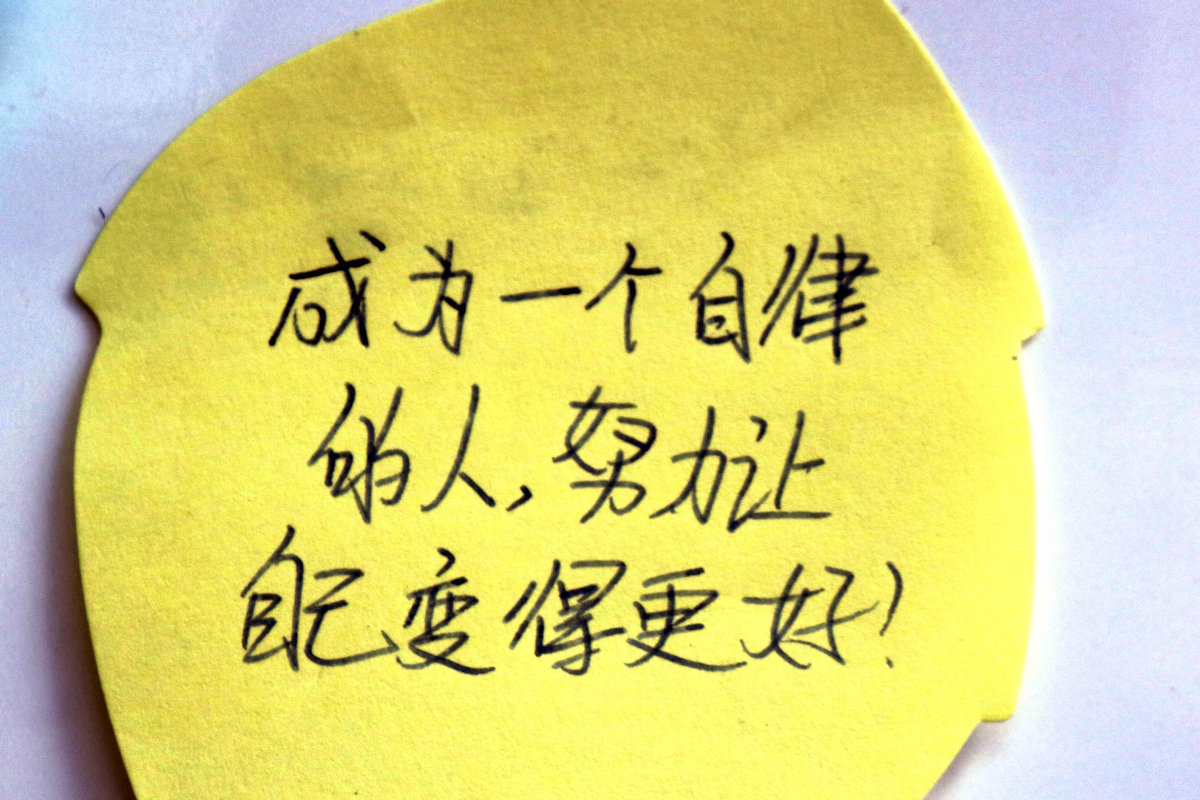 成为一个自律
的人,努力让
自己变得更好!